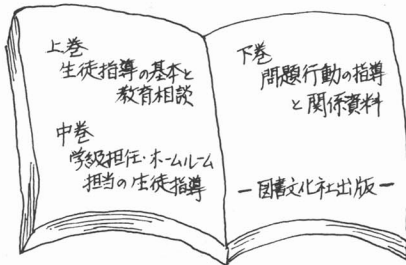 上巻
生徒指導の基本と
教育相談
中巻
学級担任・ホームルーム
担当の生徒指導
下巻
問題行動の指導
と関係資料
－図書文化社出版－